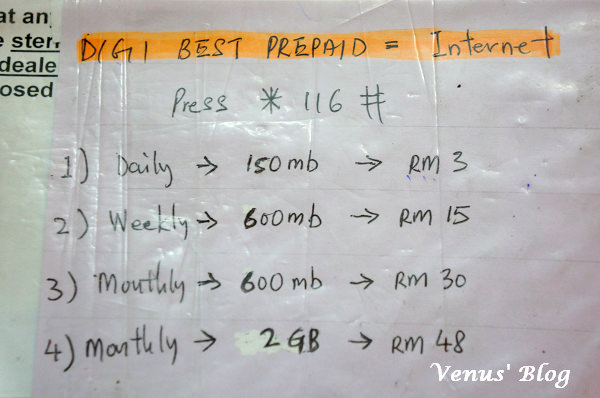 at an
ster
deale
osed
DIGI BEST PREPAID = Internet
Press * 116 #
1) Daily → 150mb → RM 3
2) Weekly → 600mb → RM 15
3) Monthly → 600mb → RM 30
4) Monthly → 2GB → RM 48
Venus' Blog